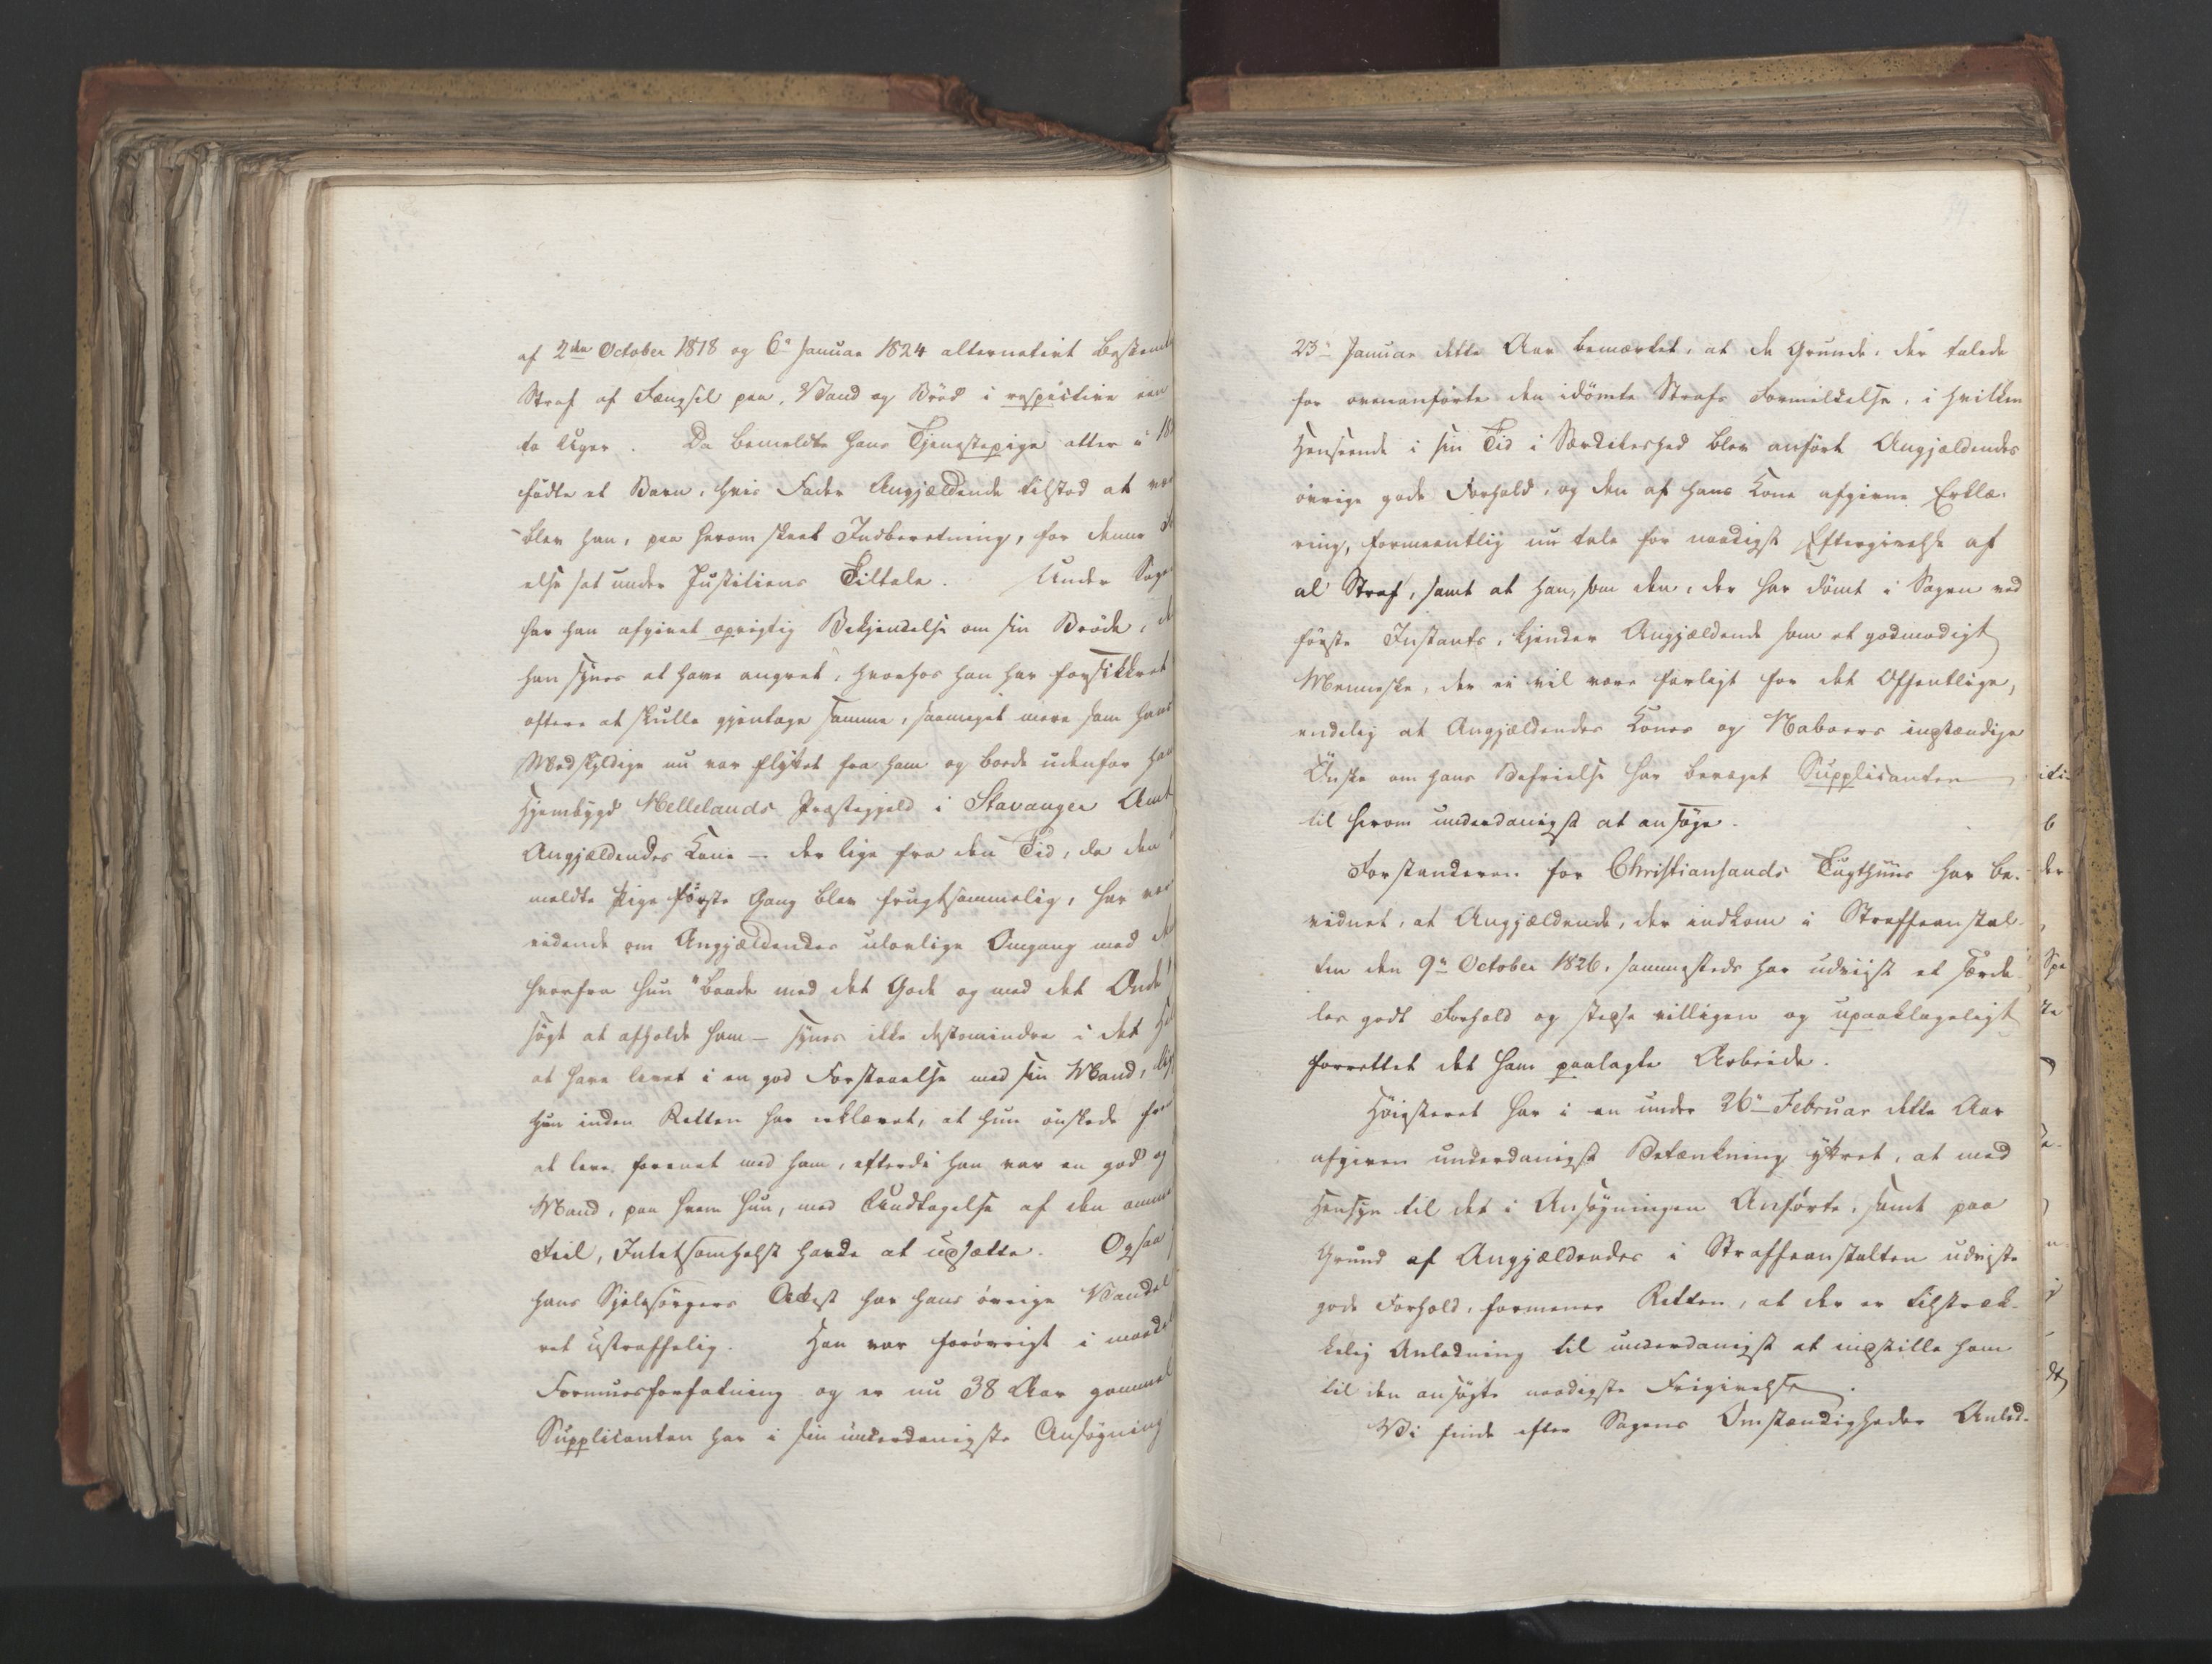 af 2den October 1818 og 6te Januar 1824 alternativt bestemte
Straf af Fængsel paa Vand og Brød i respective een
to Uger. Da bemeldte hans Tjenestepige atter i 18
fødte et Barn, hvis Fader Angjældende tilstod at
blev han, paa herom skeet Indberetning, for denne
else sat under Justitiens Tiltale. Under
har han afgivet oprigtig Bekjendelse om sin Brøde,
han synes at have angret, hvorhos han har forsikkret
oftere at skulle gjentage samme, saameget mere som hans
Medskyldige nu var flyttet fra ham og boede udenfor
Hjembygd Hellelands Præstegjeld i Stavanger Amt
Angjældendes Kone – der lige fra den Tid, da den
meldte Pige første Gang blev frugtsommelig, har
vidende om Angjældendes ulovlige Omgang med
hvorfra hun "baade med det Gode og med det Onde"
søgt at afholde ham – synes ikke destomindre i det
at have levet i en god Forstaaelse med sin Mand,
hun inden Retten har erklæret, at hun ønskede
at leve forenet med ham, efterdi han var en god og
Mand, paa hvem hun, med Undtagelse af den
Feil, Intetsomhelst havde at udsætte. Ogsaa
hans Sjelesørgers Attest har hans øvrige Vandel
ret ustraffelig. Han var forøvrigt i
Formuesforfatning og er nu 38 Aar gammel
Supplicanten har i sin underdanigste Ansøgning
23de Januar dette Aar bemærket, at de Grunde, der talede
for ovenanførte den idømte Strafs Formildelse, i hvilken
Henseende i sin Tid i Særdeleshed blev anført Angjældendes
øvrige gode Forhold, og den af hans Kone afgivne Erklæ-
ring, formeentlig nu tale for naadigst Eftergivelse af
al Straf, samt at han, som den, der har dømt i Sagen ved
første Instants, kjender Angjældende som et godmodigt
Menneske, der ei vil være farligt for det Offentlige,
endelig at Angjældendes Kones og Naboers instændige
Ønske om hans Befrielse har bevæget Supplicanten
til herom underdanigst at ansøge.
Forstanderen for Christiansands Tugthuus har be-
vidnet, at Angjældende, der indkom i Straffeanstal-
ten den 9de October 1826, sammesteds har udviist et særde-
les godt Forhold og stedse villigen og upaaklageligt
forrettet det ham paalagte Arbeide.
Høiesteret har i en under 26de Februar dette Aar
afgiven underdanigst Betænkning yttret, at med
Hensyn til det i Ansøgningen Anførte, samt paa
Grund af Angjældendes i Straffeanstalten udviste
gode Forhold, formener Retten, at der er tilstræk-
kelig Anledning til underdanigst at indstille ham
til den ansøgte naadigste Frigivelse.
Vi finde efter Sagens Omstændigheder Anled-